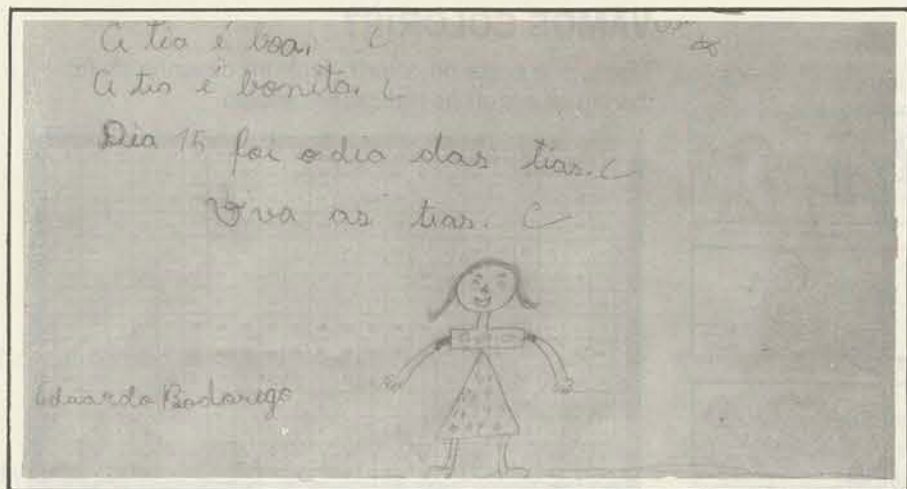 A tia é boa. C
A tia é bonita. C
Dia 15 foi o dia das tias. C
Viva as tias. C
Eduardo Badarigo